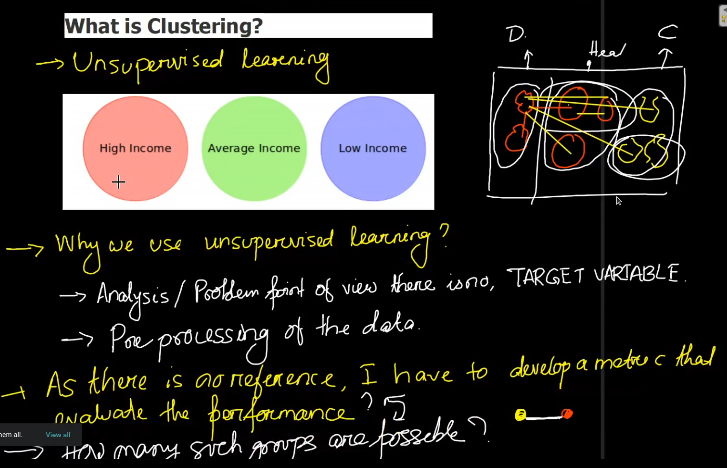 What is Clustering?
→ Unsupervised learning
High Income Average Income Low Income
D. Head C
→ Why we use unsupervised learning?
→ Analysis / Problem point of view there is no, TARGET VARIABLE.
→ Pre processing of the data.
→ As there is no reference, I have to develop a metric that
evaluate the performance?
→ How many such groups are possible?
hem all. View all